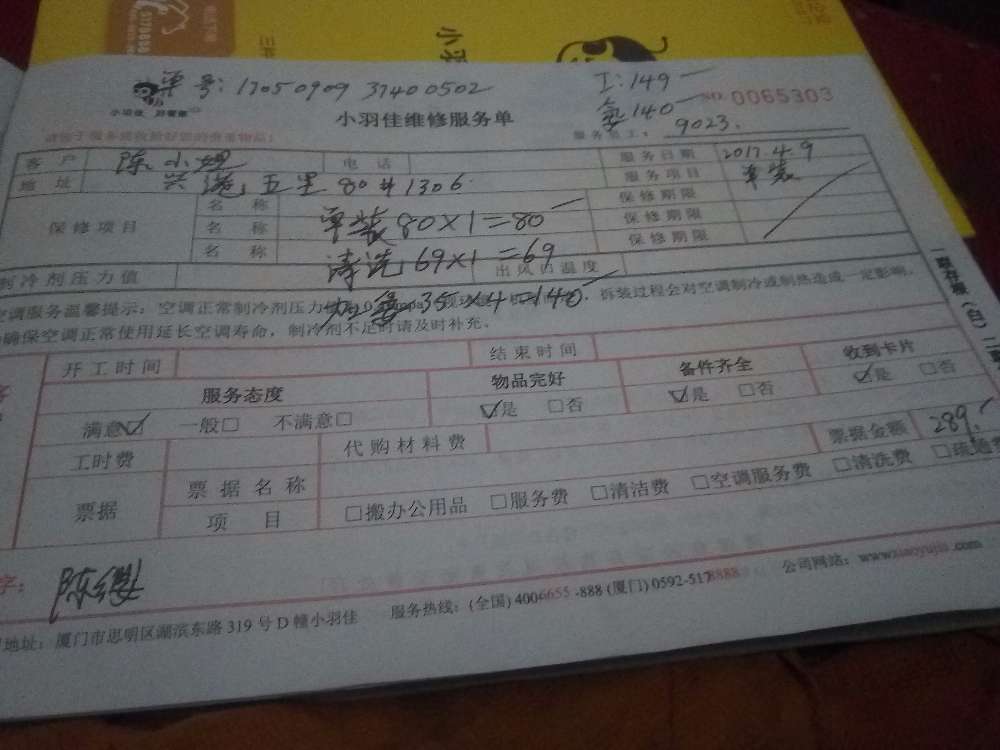 单号: 17050909 37400502
工: 149
氟 140
NO. 0065303
小羽佳
小羽佳维修服务单
服务员工: 9023.
客户 陈小 电话 服务日期 2017.4.9
地址 兴港五里 80#1306 服务项目 单装
保修项目 名称 单装 80×1=80 保修期限
名称 清洗 69×1=69 保修期限
名称 加氟 35×4=140 保修期限
制冷剂压力值 出风口温度
空调服务温馨提示: 空调正常制冷剂压力 拆装过程会对空调制冷或制热造成一定影响,
确保空调正常使用延长空调寿命, 制冷剂不足时请及时补充。
一联存根 (白) 二
开工时间 结束时间
服务态度 物品完好 备件齐全 收到卡片
满意☑ 一般□ 不满意□ ☑是 □否 ☑是 □否 ☑是 □否
工时费 代购材料费 票据金额 289.
票据 票据名称
项目 □搬办公用品 □服务费 □清洁费 □空调服务费 □清洗费 □疏通费
字:
地址: 厦门市思明区湖滨东路 319 号 D 幢小羽佳 服务热线: (全国) 4006655-888 (厦门) 0592-5178888 公司网站: www.xiaoyujia.com